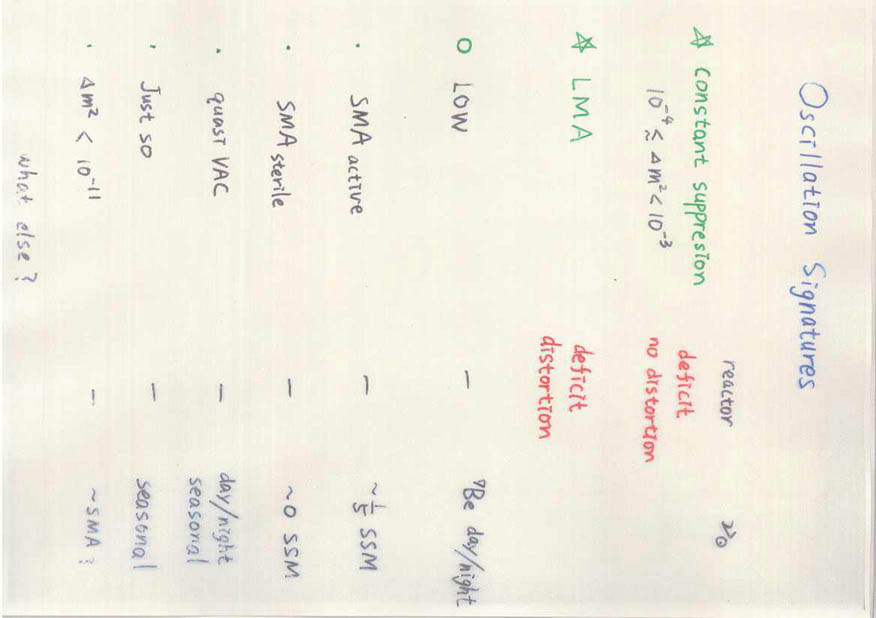 Oscillation Signatures
reactor ν⊙
☆ Constant suppresion deficit
10⁻⁴ ≲ Δm² < 10⁻³ no distortion
☆ LMA deficit
distortion
○ LOW — ⁷Be day/night
· SMA active — ~1/5 SSM
· SMA sterile — ~0 SSM
· quasi VAC — day/night
seasonal
· Just so — seasonal
· Δm² < 10⁻¹¹ — ~SMA?
what else?